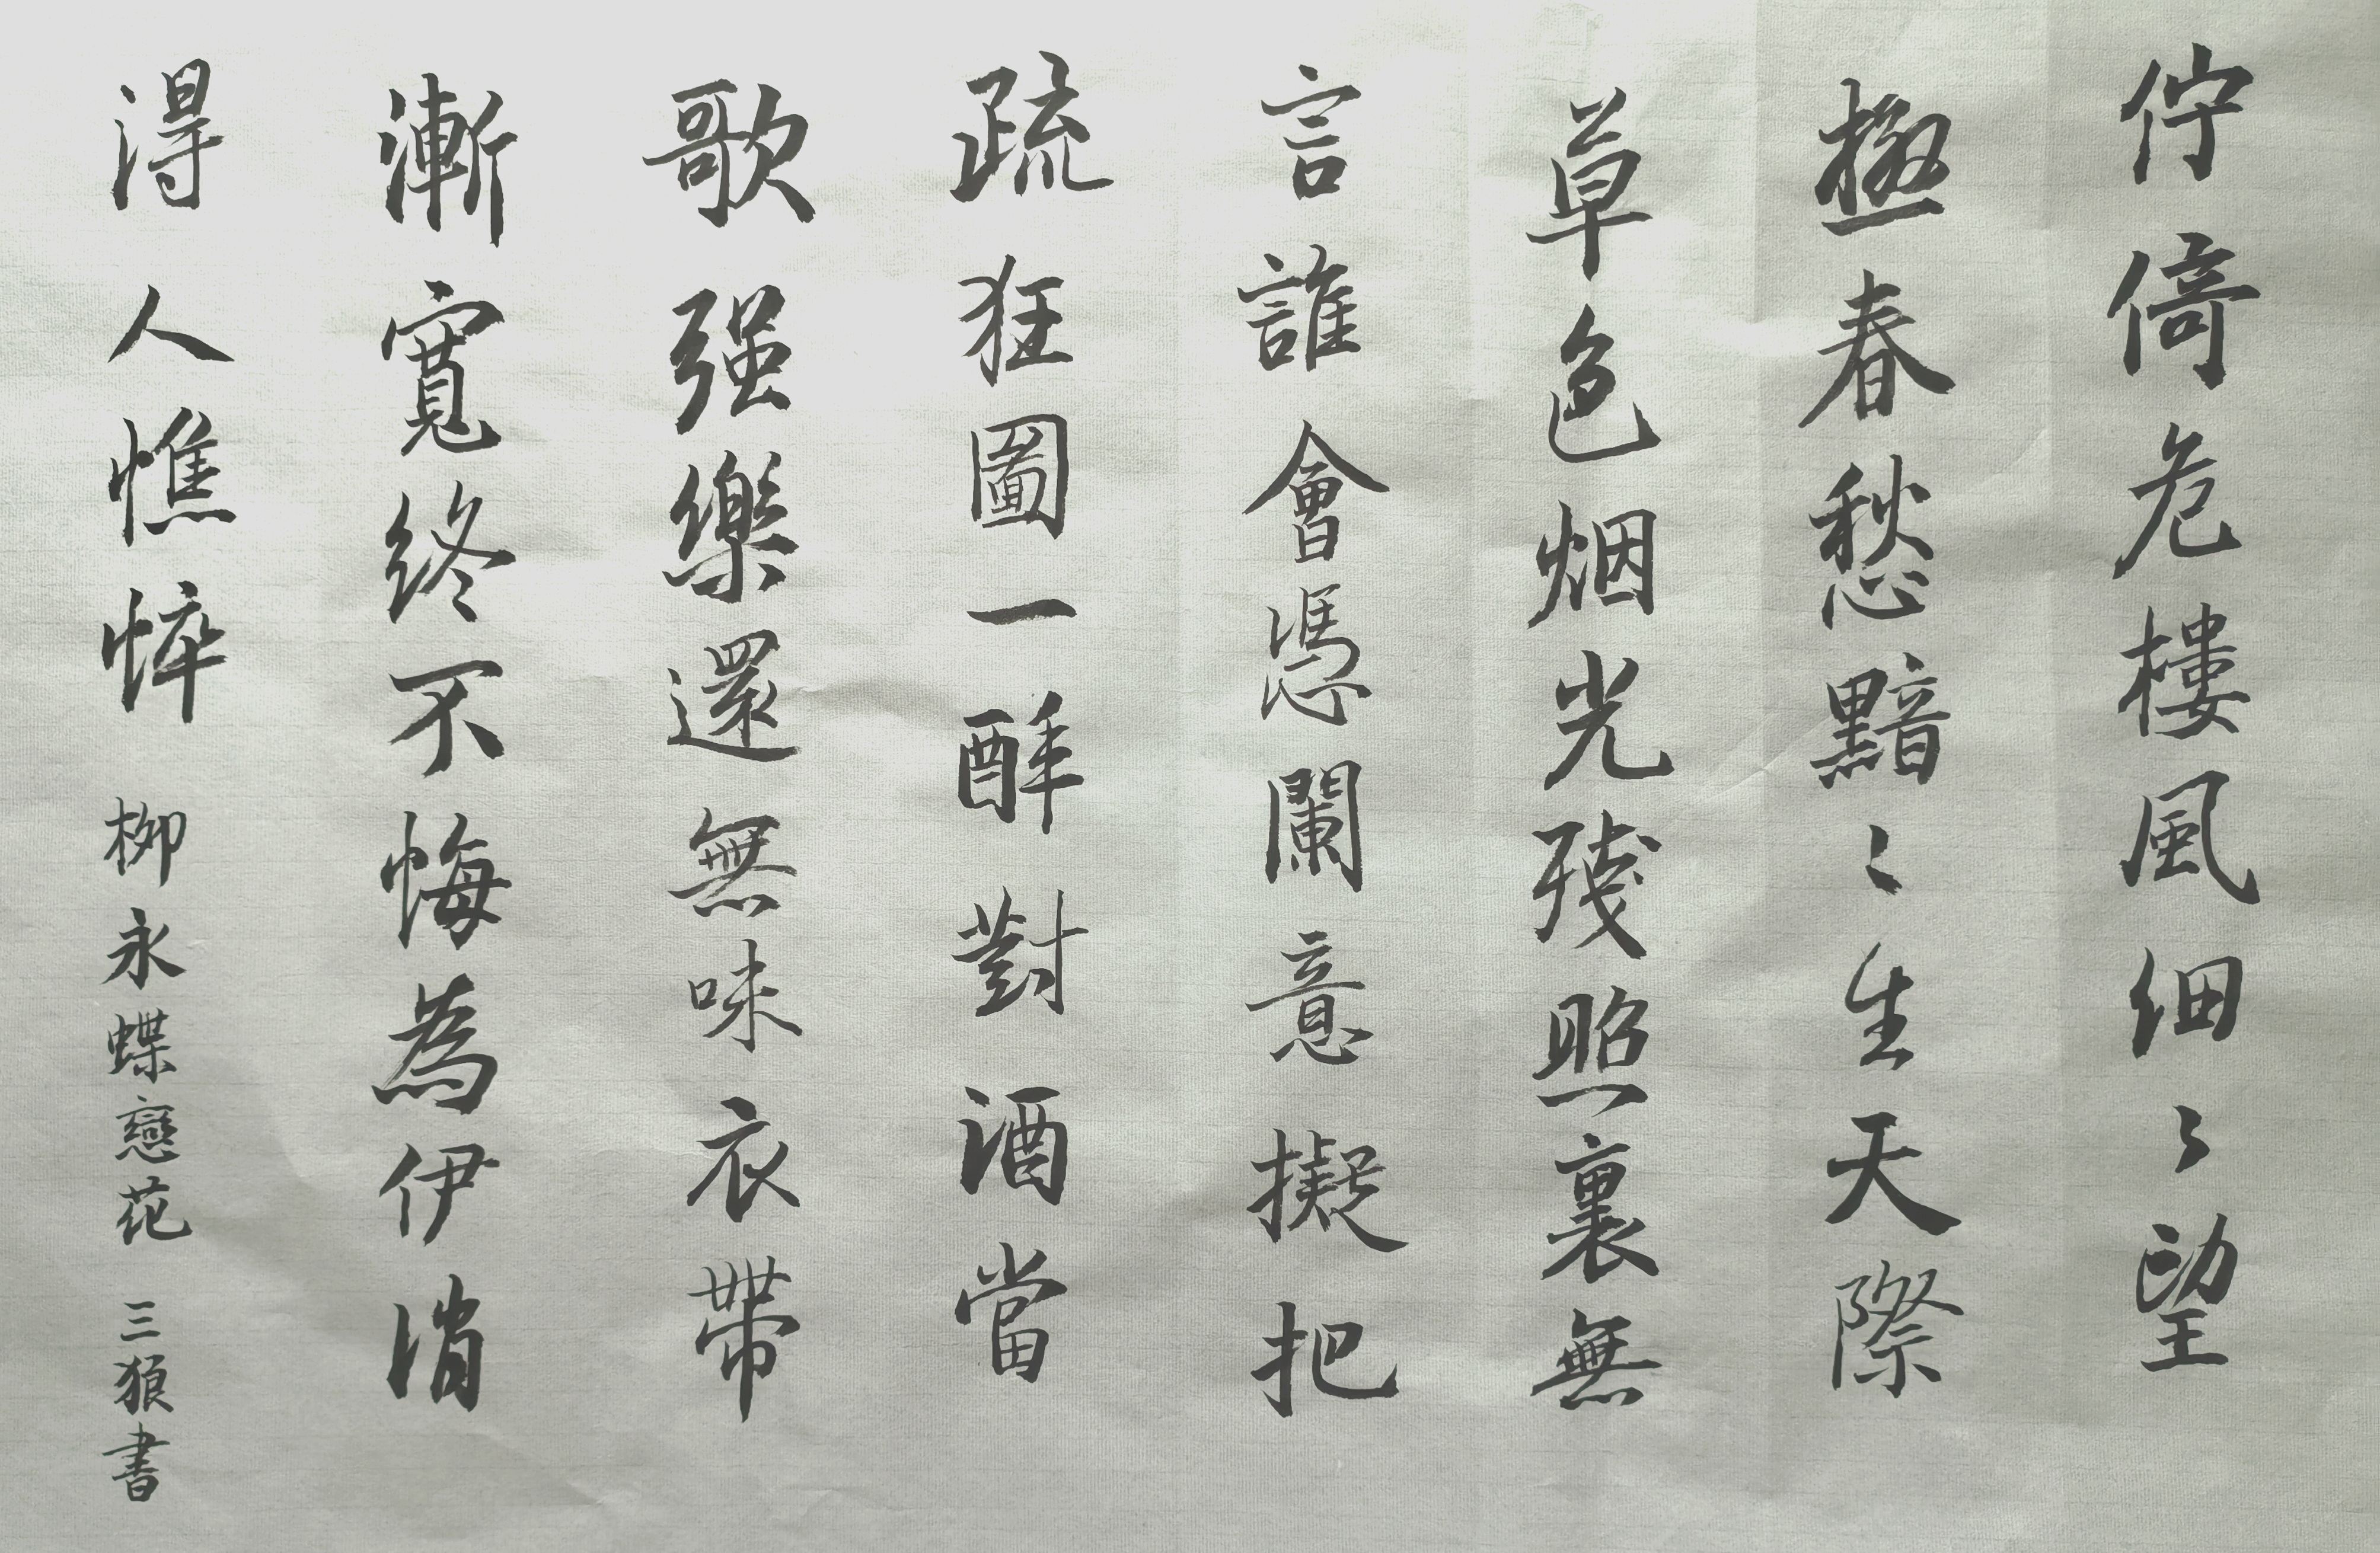 佇倚危樓風細〻望
極春愁黯〻生天際
草色烟光殘照裏無
言誰會憑闌意擬把
疏狂圖一醉對酒當
歌强樂還無味衣帶
漸寬終不悔為伊消
得人憔悴 柳永蝶戀花 三狼書